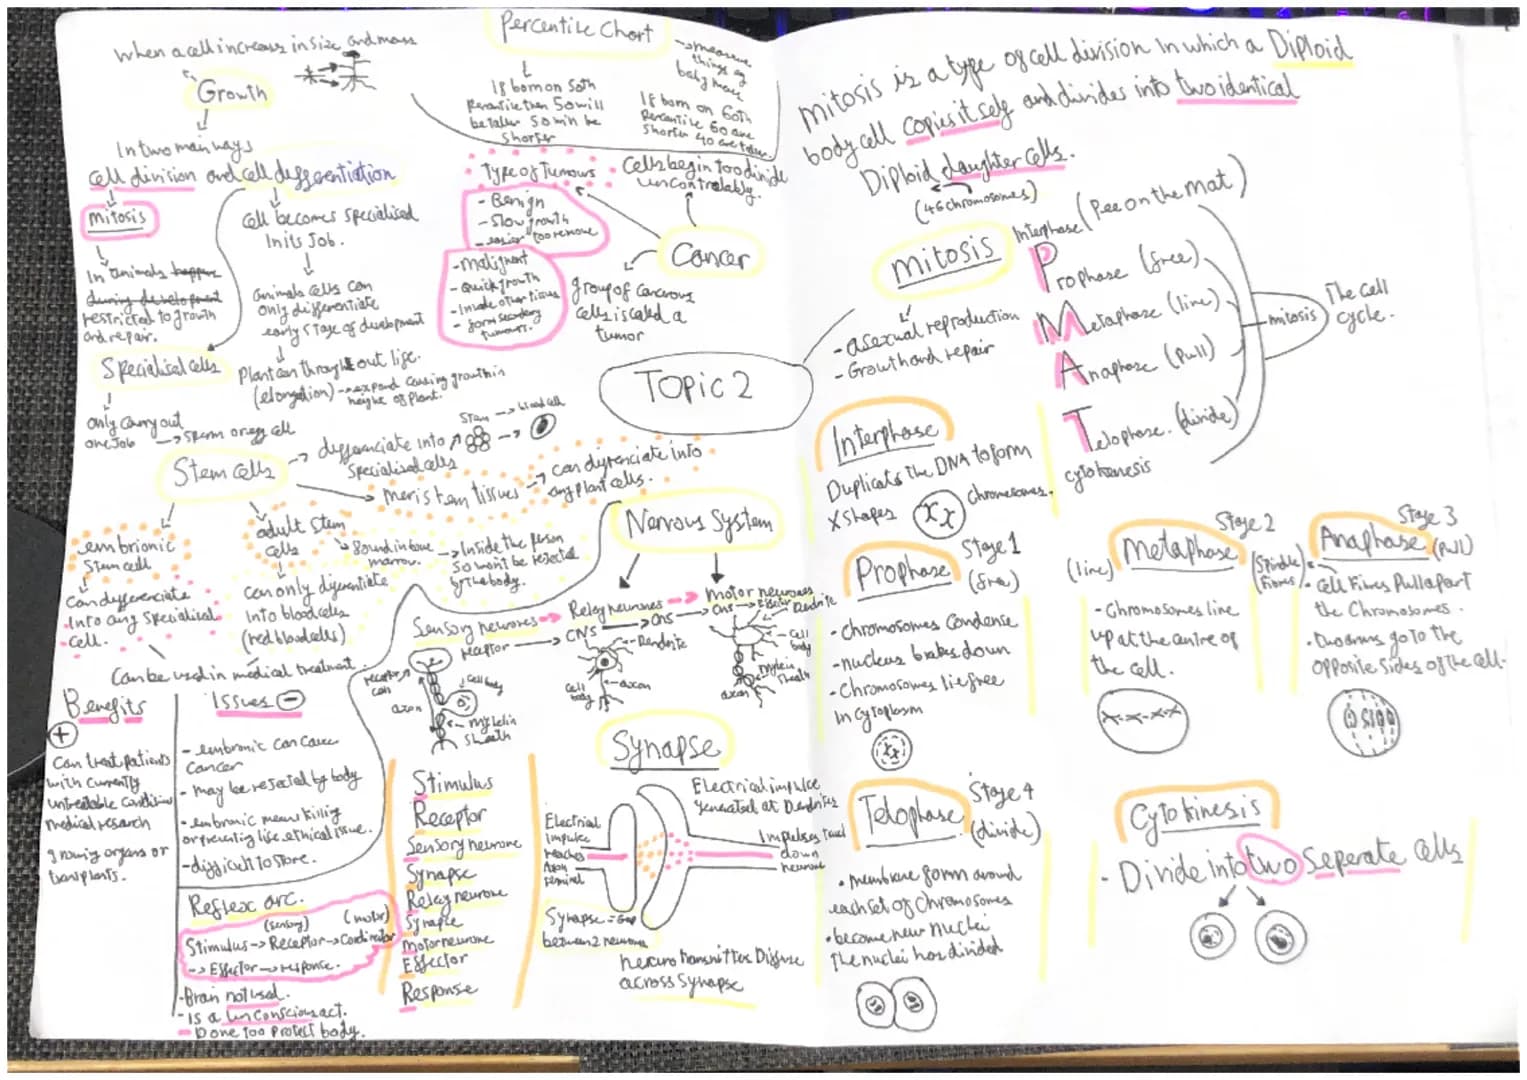 When a cell increases in size and mass
Growth
In two main ways
cell division and cell differentiation
mitosis
In animals happens
during development
restricted to growth
and repair.
Cell becomes specialised
In its Job.
animals cells can
only differentiate
early stage of development
Plant can throughout life.
(elongation) → expand causing growth in
height of plant.
Specialised cells
only carry out
one Job → sperm or egg cell
Percentile Chart
→ measure
things eg
baby mass
If born on 50th
Percentile then 50 will
be taller 50 win be
shorter
If born on 60th
Percentile 60 are
shorter 40 are taller
Type of Tumours
- Benign
- Slow growth
- easier too remove
- malignant
- Quick growth
- Invade other tissues
- form secondary
tumours.
Cells begin too divide
uncontrolably.
Cancer
group of cancerous
cells is called a
tumor
Topic 2
Stem cells
→ differenciate into
Specialised cells
Stem → blood cell
meristem tissues → can differenciate into
any plant cells.
embrionic
Stem cell
Can differenciate
Into any specialised
cell.
adult stem
cells
found in bone
marrow.
→ Inside the person
so won't be rejected
by the body.
can only differentiate
Into blood cells
(red blood cells)
Can be used in medical treatment.
Benefits
+
Can treat patients
with currently
untreatable conditions
medical research
growing organs or
transplants.
Issues -
- embronic can cause
cancer
- may be rejected by body
- embronic means killing
or preventing life, ethical issue.
- difficult to store.
Reflex arc.
(sensory) (motor)
Stimulus → Receptor → Cordinator
→ Effector → response.
- Brain not used.
- Is a unconscious act.
- Done too Protect body.
Nervous System
Sensory neurones → Relay neurones → motor neurones
receptor → CNS → CNS
CNS → Effector
receptor
cells
axon
cell body
mylelin
sheath
Dendrite
cell
body
axon
Dendrite
cell
body
mylein
sheath
axon
Stimulus
Receptor
Sensory neurone
Synapse
Relay neurone
Synapse
motor neurone
Effector
Response
Synapse
Electrical
Impulse
reaches
Axon
terminal
Electrical impulse
generated at Dendrites
Impulses travel
down
neurone
Synapse = Gap
between 2 neurones
neurotransmittos Diffuse
across Synapse
mitosis is a type of cell division In which a Diploid
body cell copies itself and divides into two identical
Diploid daughter cells.
(46 chromosomes)
mitosis
- asexual reproduction
- Growth and repair
Interphase (Pee on the mat)
Prophase (free)
Metaphase (line)
Anaphase (Pull)
Telophase. (divide)
cytokenesis
mitosis
The cell
cycle.
Interphase
Duplicats the DNA to form
X shapes
chromosomes.
Prophase
Stage 1
(free)
- chromosomes condense
- nucleus brakes down
- Chromosomes lie free
In cytoplasm
Metaphase
Stage 2
(line)
- Chromosomes line
up at the centre of
the cell.
Anaphase (Pull)
Stage 3
(Spindle
Fibres)
• Cell Fibres Pull apart
the Chromosomes.
• two arms go to the
opposite sides of the cell.
Telophase
Stage 4
(divide)
• membrane form around
each set of chromosomes
• become new nuclei
The nuclei has divided
Cytokinesis
- Divide into two Seperate cells